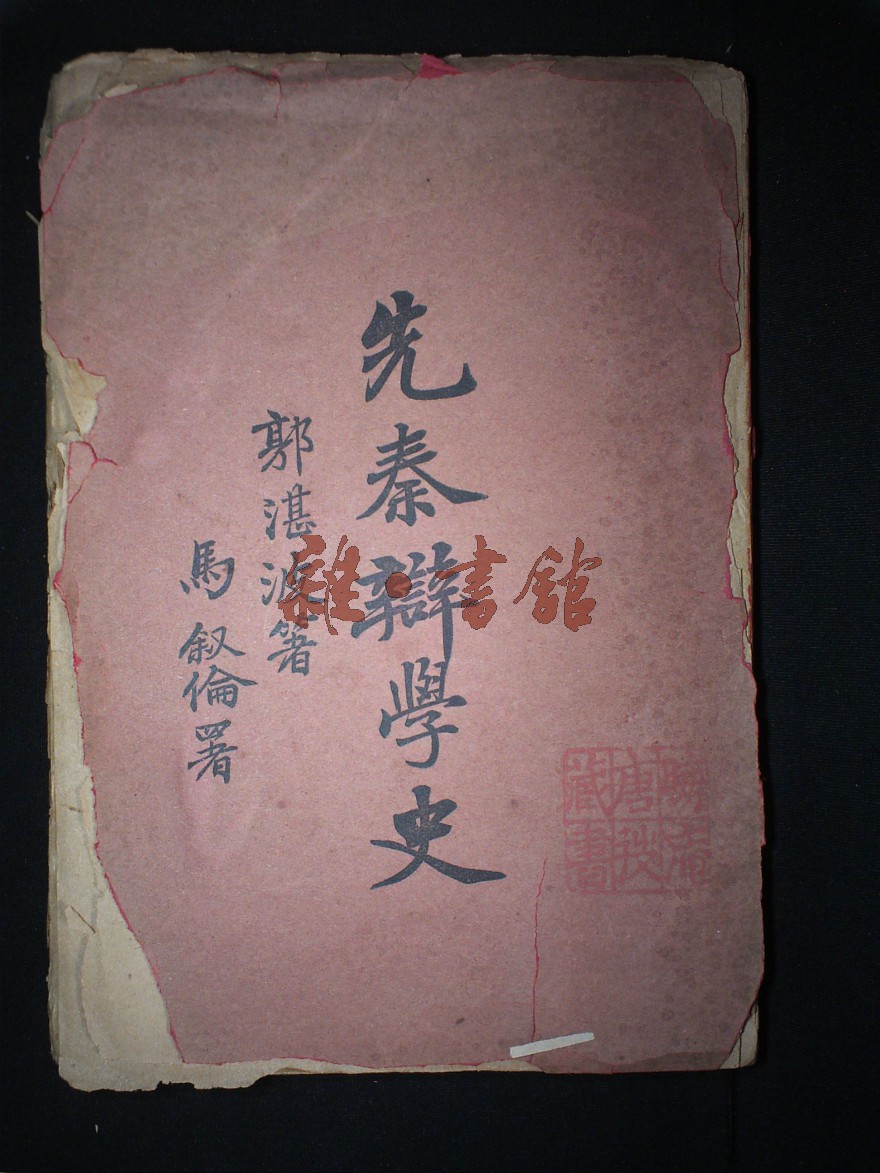 先秦辯學史
郭湛波箸
馬叙倫署
雜·書館
唐
藏書